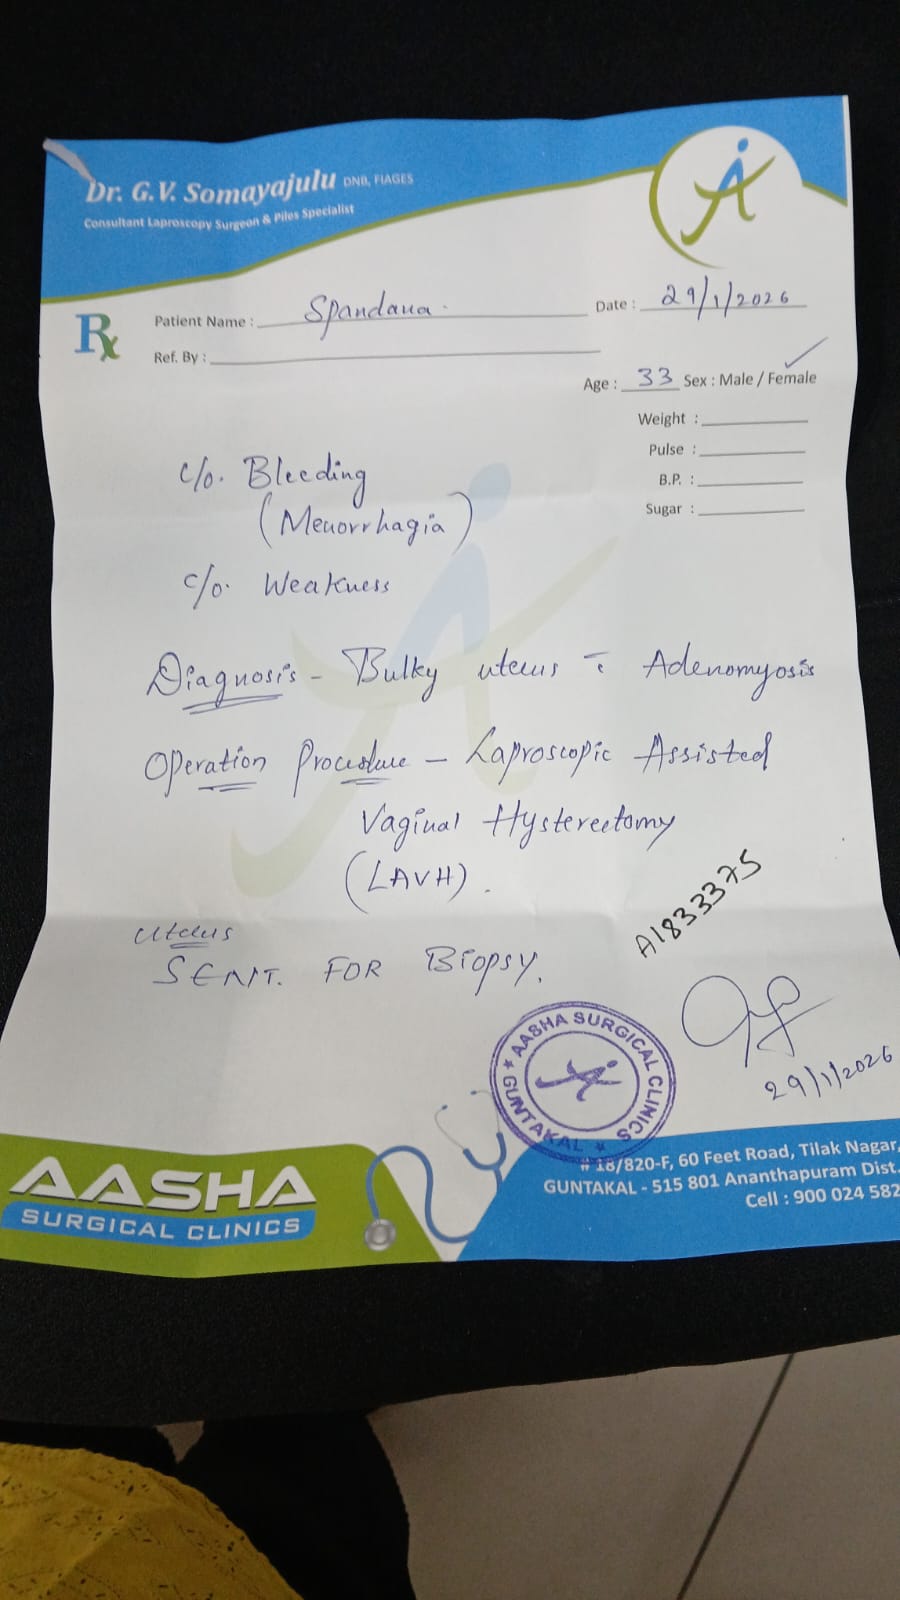 Dr. G.V. Somayajulu DNB, FIAGES
Consultant Laproscopy Surgeon & Piles Specialist
Rx
Patient Name : Spandana.
Date : 29/1/2026
Ref. By :
Age : 33 Sex : Male / Female
Weight :
Pulse :
B.P. :
Sugar :
c/o. Bleeding
(Menorrhagia)
c/o. Weakness
Diagnosis - Bulky uterus c̄ Adenomyosis
Operation Procedure - Laproscopic Assisted
Vaginal Hysterectomy
(LAVH).
A1833375
Uterus
SENT. FOR Biopsy.
29/1/2026
AASHA SURGICAL CLINICS
★ GUNTAKAL ★
AASHA
SURGICAL CLINICS
# 18/820-F, 60 Feet Road, Tilak Nagar,
GUNTAKAL - 515 801 Ananthapuram Dist.
Cell : 900 024 582